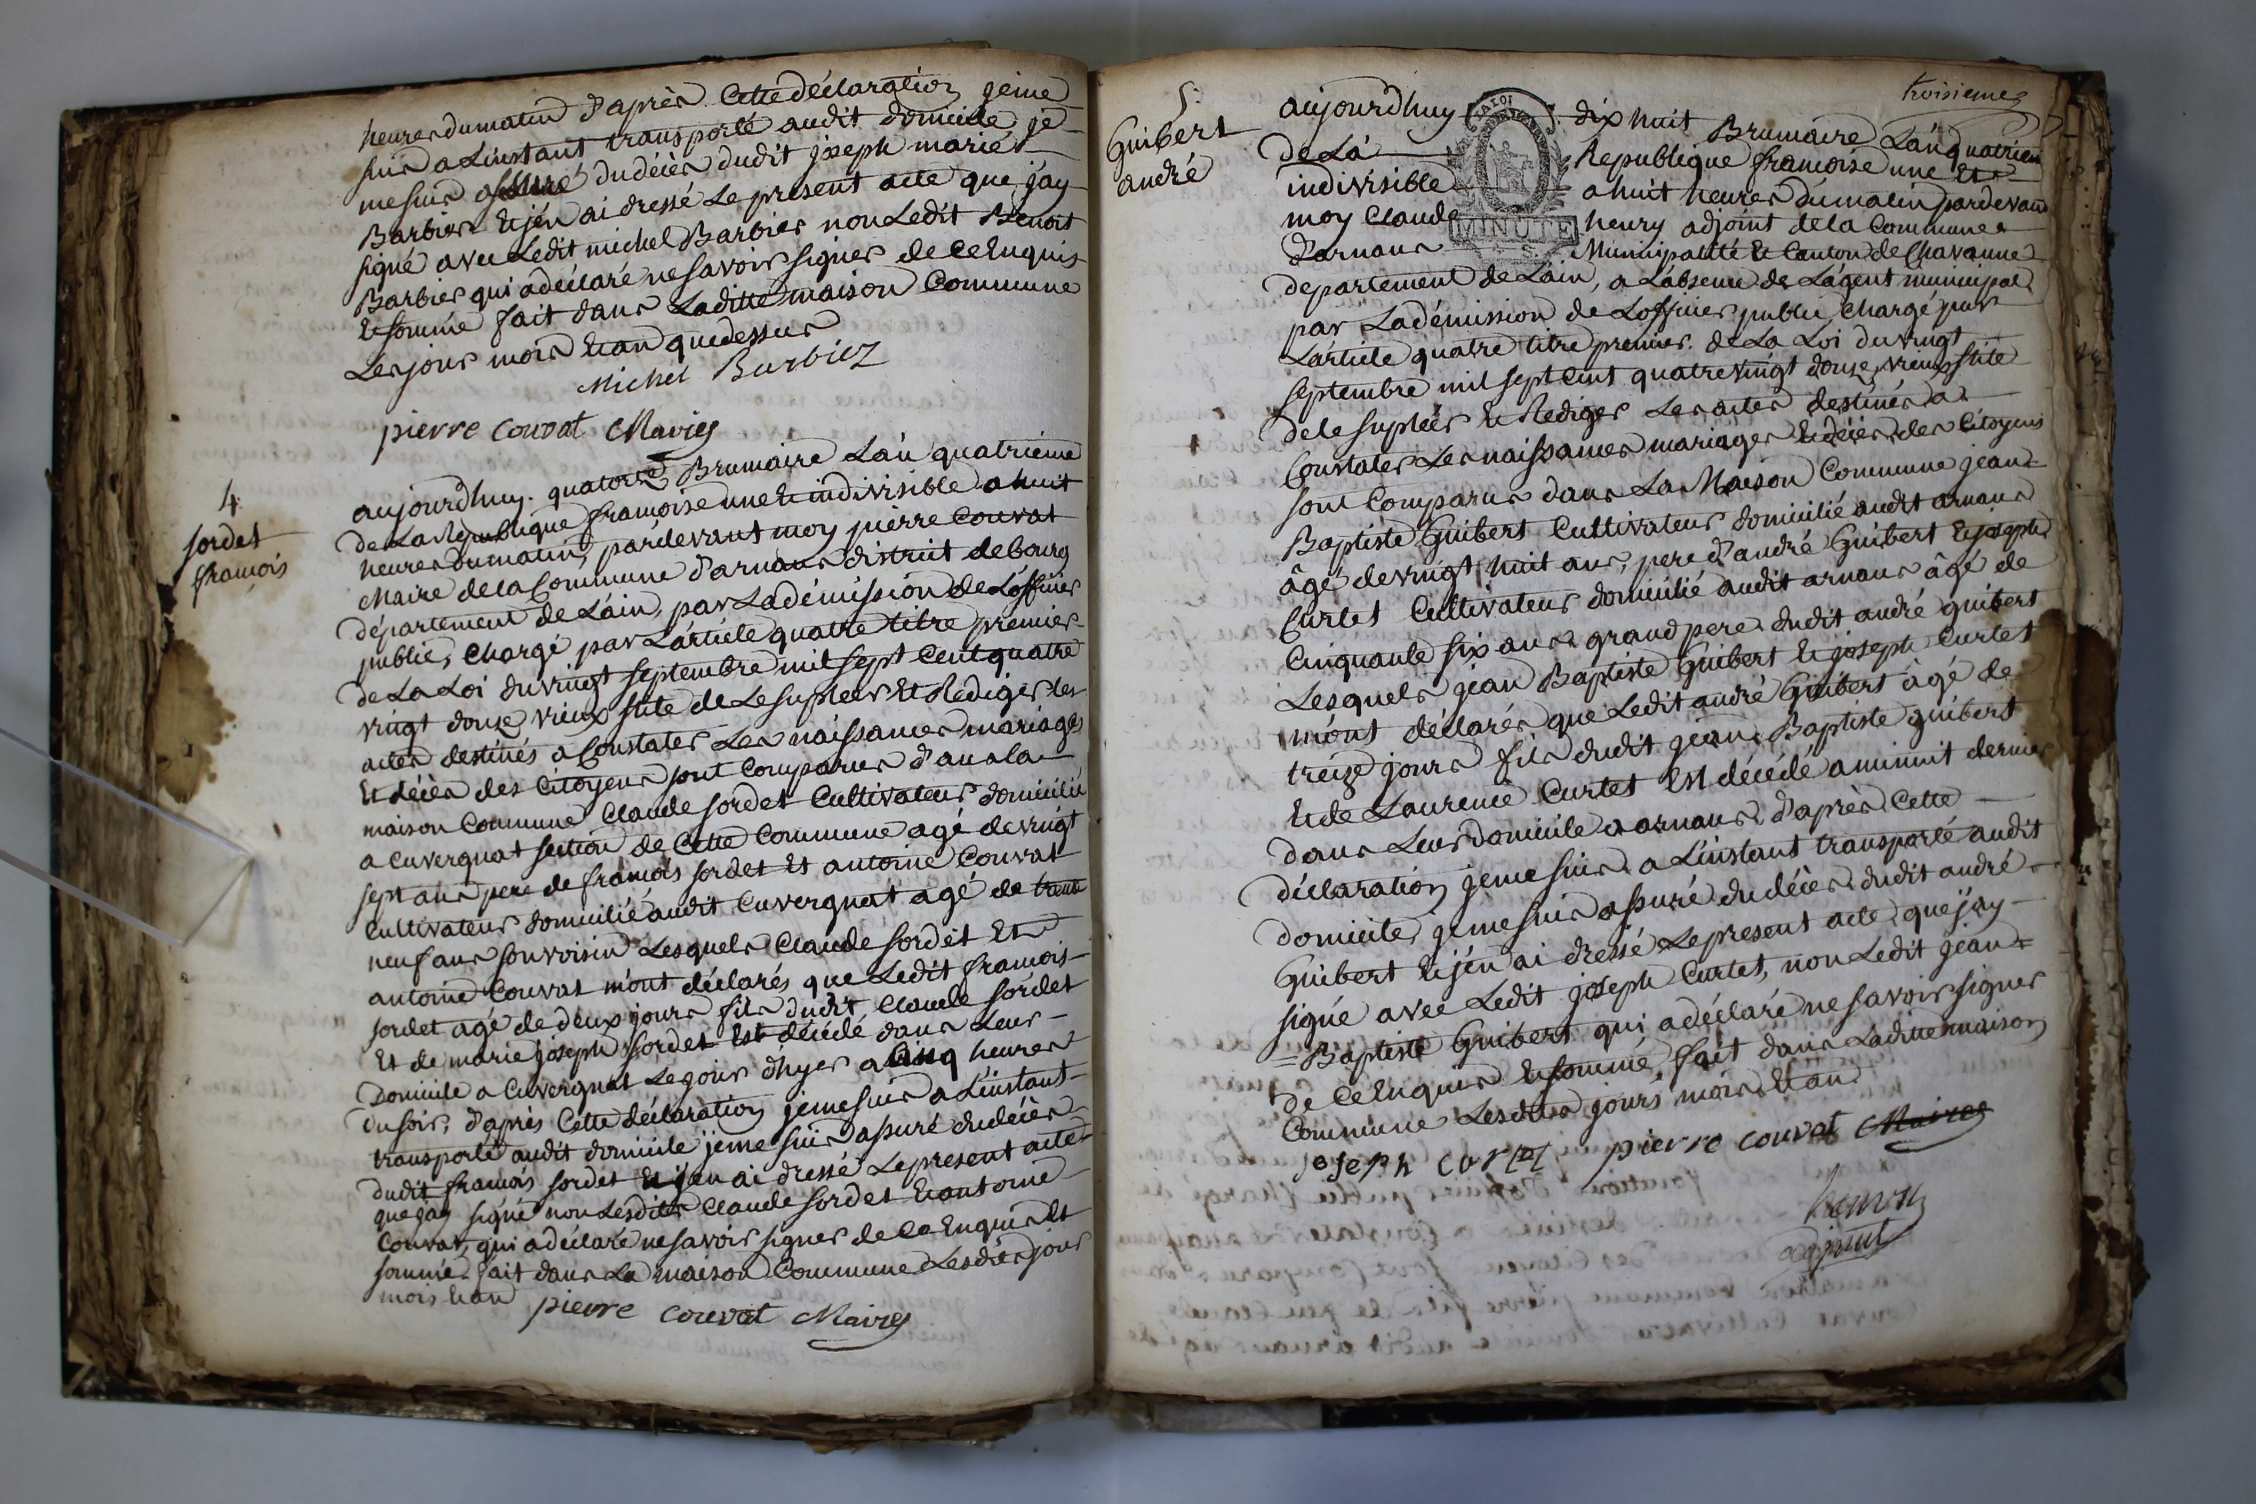 heures du matin d'après Cette déclaration jeme
suis a Linstant transporté audit domicile je
me suis assuré du décès dudit joseph marie
Barbier Et jén ai dressé Le present acte que jáy
signé avec Ledit michel Barbier non Ledit Benoit
Barbier qui a déclaré ne savoir signer de ce Enquis
Et sommé fait dans Laditte maison Commune
Les jour mois Et an que dessus
Michel Barbiez
pierre couvat Maires
4.
sordet
francois
aujourdhuy. quatorze Brumaire Lán quatrieme
de La Republique francoise une Et indivisible a huit
heures du matin, pardevant moy pierre Couvat
Maire de la Commune d'arnans district de bourg
département de Láin, par La démission de Lófficier
public, Chargé par Lárticle quatre titre premier
de La Loi du vingt septembre mil sept Cent quatre
vingt douze vieux stile de Le supleer Et Rediger les
actes destinés a Constater Les naissances mariages
Et décès des Citoyens sont Comparus d'ans la
maison Commune Claude sordet Cultivateur domicilié
a cuvergnat section de Cette Commune agé de vingt
sept ans pere de francois sordet Et antoine Couvat
Cultivateur domicilié audit Cuvergnat agé de trente
neuf ans son voisin Lesquels Claude sordet Et
antoine Couvat m'ont déclarés que Ledit francois
sordet agé de deux jours fils dudit Claude sordet
Et de marie joseph sordet Est décédé dans Leur
Domicile a Cuvergnat Le jour d'hyer a cinq heures
du soir, d'après Cette déclaration jeme suis a Linstant
transporté audit domicile jeme suis assuré du décès
dudit francois sordet Et jen ai dressé Le present acte
que jay signé non Lesdits Claude sordet Et antoine
Couvat, qui a déclaré ne savoir signer de ce Enquis Et
sommé. fait dans La maison Commune Lesdits jour
mois Et an
pierre couvat Maires
troisieme
5.
Guibert
andré
LA LOI
MINUTE
aujourdhuy dix huit Brumaire Lán quatrieme
de La Republique francoise une Et
indivisible a huit heures du matin pardevant
moy Claude henry adjoint de la Commune
d'arnans Municipalité Et Canton de Chavanne
departement de Láin, a Lábsence de Lágent municipal
par La démission de Lofficier public, Chargé par
Lárticle quatre titre premier. de La Loi du vingt
septembre mil sept Cent quatrevingt douze, vieux stile
de le supléer Et Rediger Les actes destinés a
Constater Les naissances mariages Et décès des Citoyens
sont Comparus dans La Maison Commune jean=
Baptiste Guibert Cultivateur domicilié audit arnans
âgé de vingt huit ans, pere d'andré Guibert Et joseph
Curtet Cultivateur domicilié audit arnans âgé de
Cinquante six ans grand pere dudit andré guibert
Lesquels jean Baptiste Guibert Et joseph Curtet
mónt déclarés que Ledit andré Guibert âgé de
treize jours fils dudit jean Baptiste guibert
Et de Laurence Curtet Est décédé a minuit dernier
dans Leur domicile a arnans, d'après Cette
déclaration jeme suis a Linstant transporté audit
domicile, jeme suis assuré du décès dudit andré
Guibert Et jén ai dressé Le present acte que jáy
signé avec Ledit joseph Curtet, non Ledit jean=
=Baptiste Guibert qui a déclaré ne savoir signer
de Ce Enquis Et sommé, fait dans Laditte maison
Commune Lesdits jours mois Et an
joseph curtet pierre couvat Maires
henry
adjoint